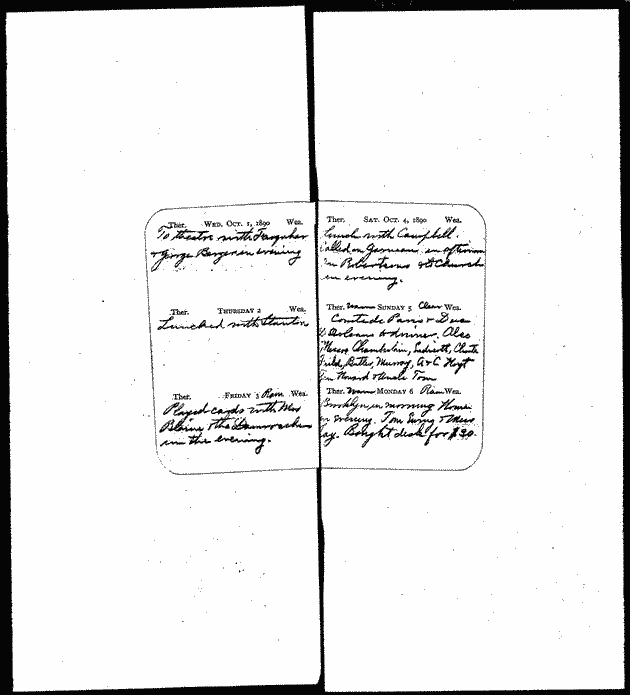 Ther. WED. OCT. 1, 1890 Wea.
To theatre with Farquhar
& George Barger in evening
Ther. THURSDAY 2 Wea.
Lunched with Stanton
Ther. FRIDAY 3 Rain Wea.
Played cards with Mrs
Blaine & the Damrosches
in the evening.
Ther. SAT. OCT. 4, 1890 Wea.
Lunch with Campbell.
Called on in afternoon
Robertsons & Church
in evening.
Ther. Warm SUNDAY 5 Clear Wea.
Comte de Paris & Duc
D'Orleans to dinner. Also
Messrs Chamberlain, Choate
Field, Butler, Murray, A & C Hoyt
Howard & Uncle Tom
Ther. Warm MONDAY 6 Rain Wea.
Brooklyn in morning Home
in evening. Tom Ewing &
Jay. Bought desk for $30.